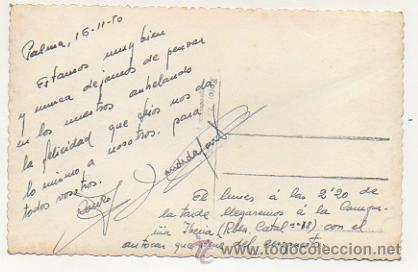 Palma, 16-11-50
Estamos muy bien
y nunca dejamos de pensar
en los nuestros anhelando
la felicidad que ellos nos da
lo mismo a nosotros. para
todos vosotros.
El lunes á las 2'20 de
la tarde llegaremos á la Compa-
ñia Iberia (Rbla. Catal) con el
autocar que del aeropuerto
www.todocoleccion.net